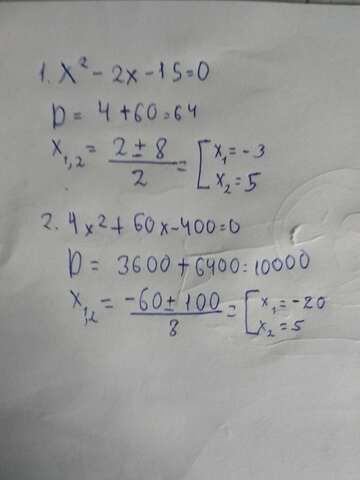 1. x² - 2x - 15 = 0
D = 4 + 60 = 64
x₁,₂ = (2 ± 8)/2 = [x₁ = -3
x₂ = 5
2. 4x² + 60x - 400 = 0
D = 3600 + 6400 = 10000
x₁,₂ = (-60 ± 100)/8 = [x₁ = -20
x₂ = 5